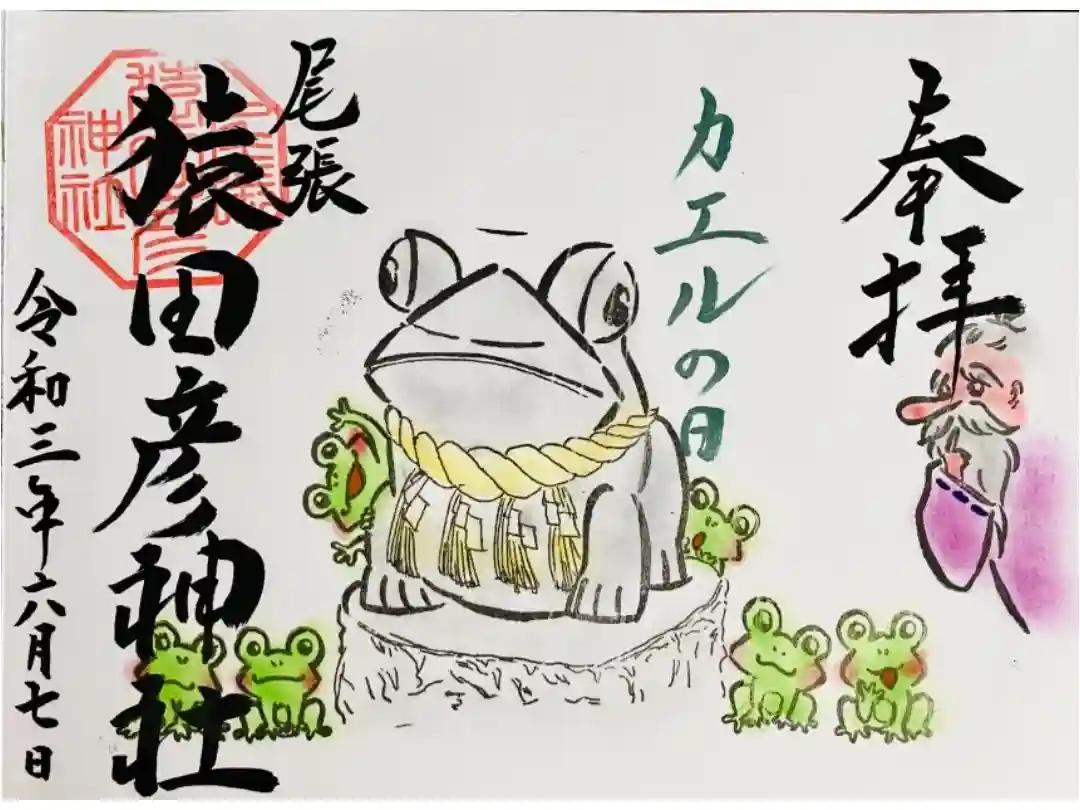 奉拝
カエルの日
尾張
猿田彦神社
令和三年六月七日